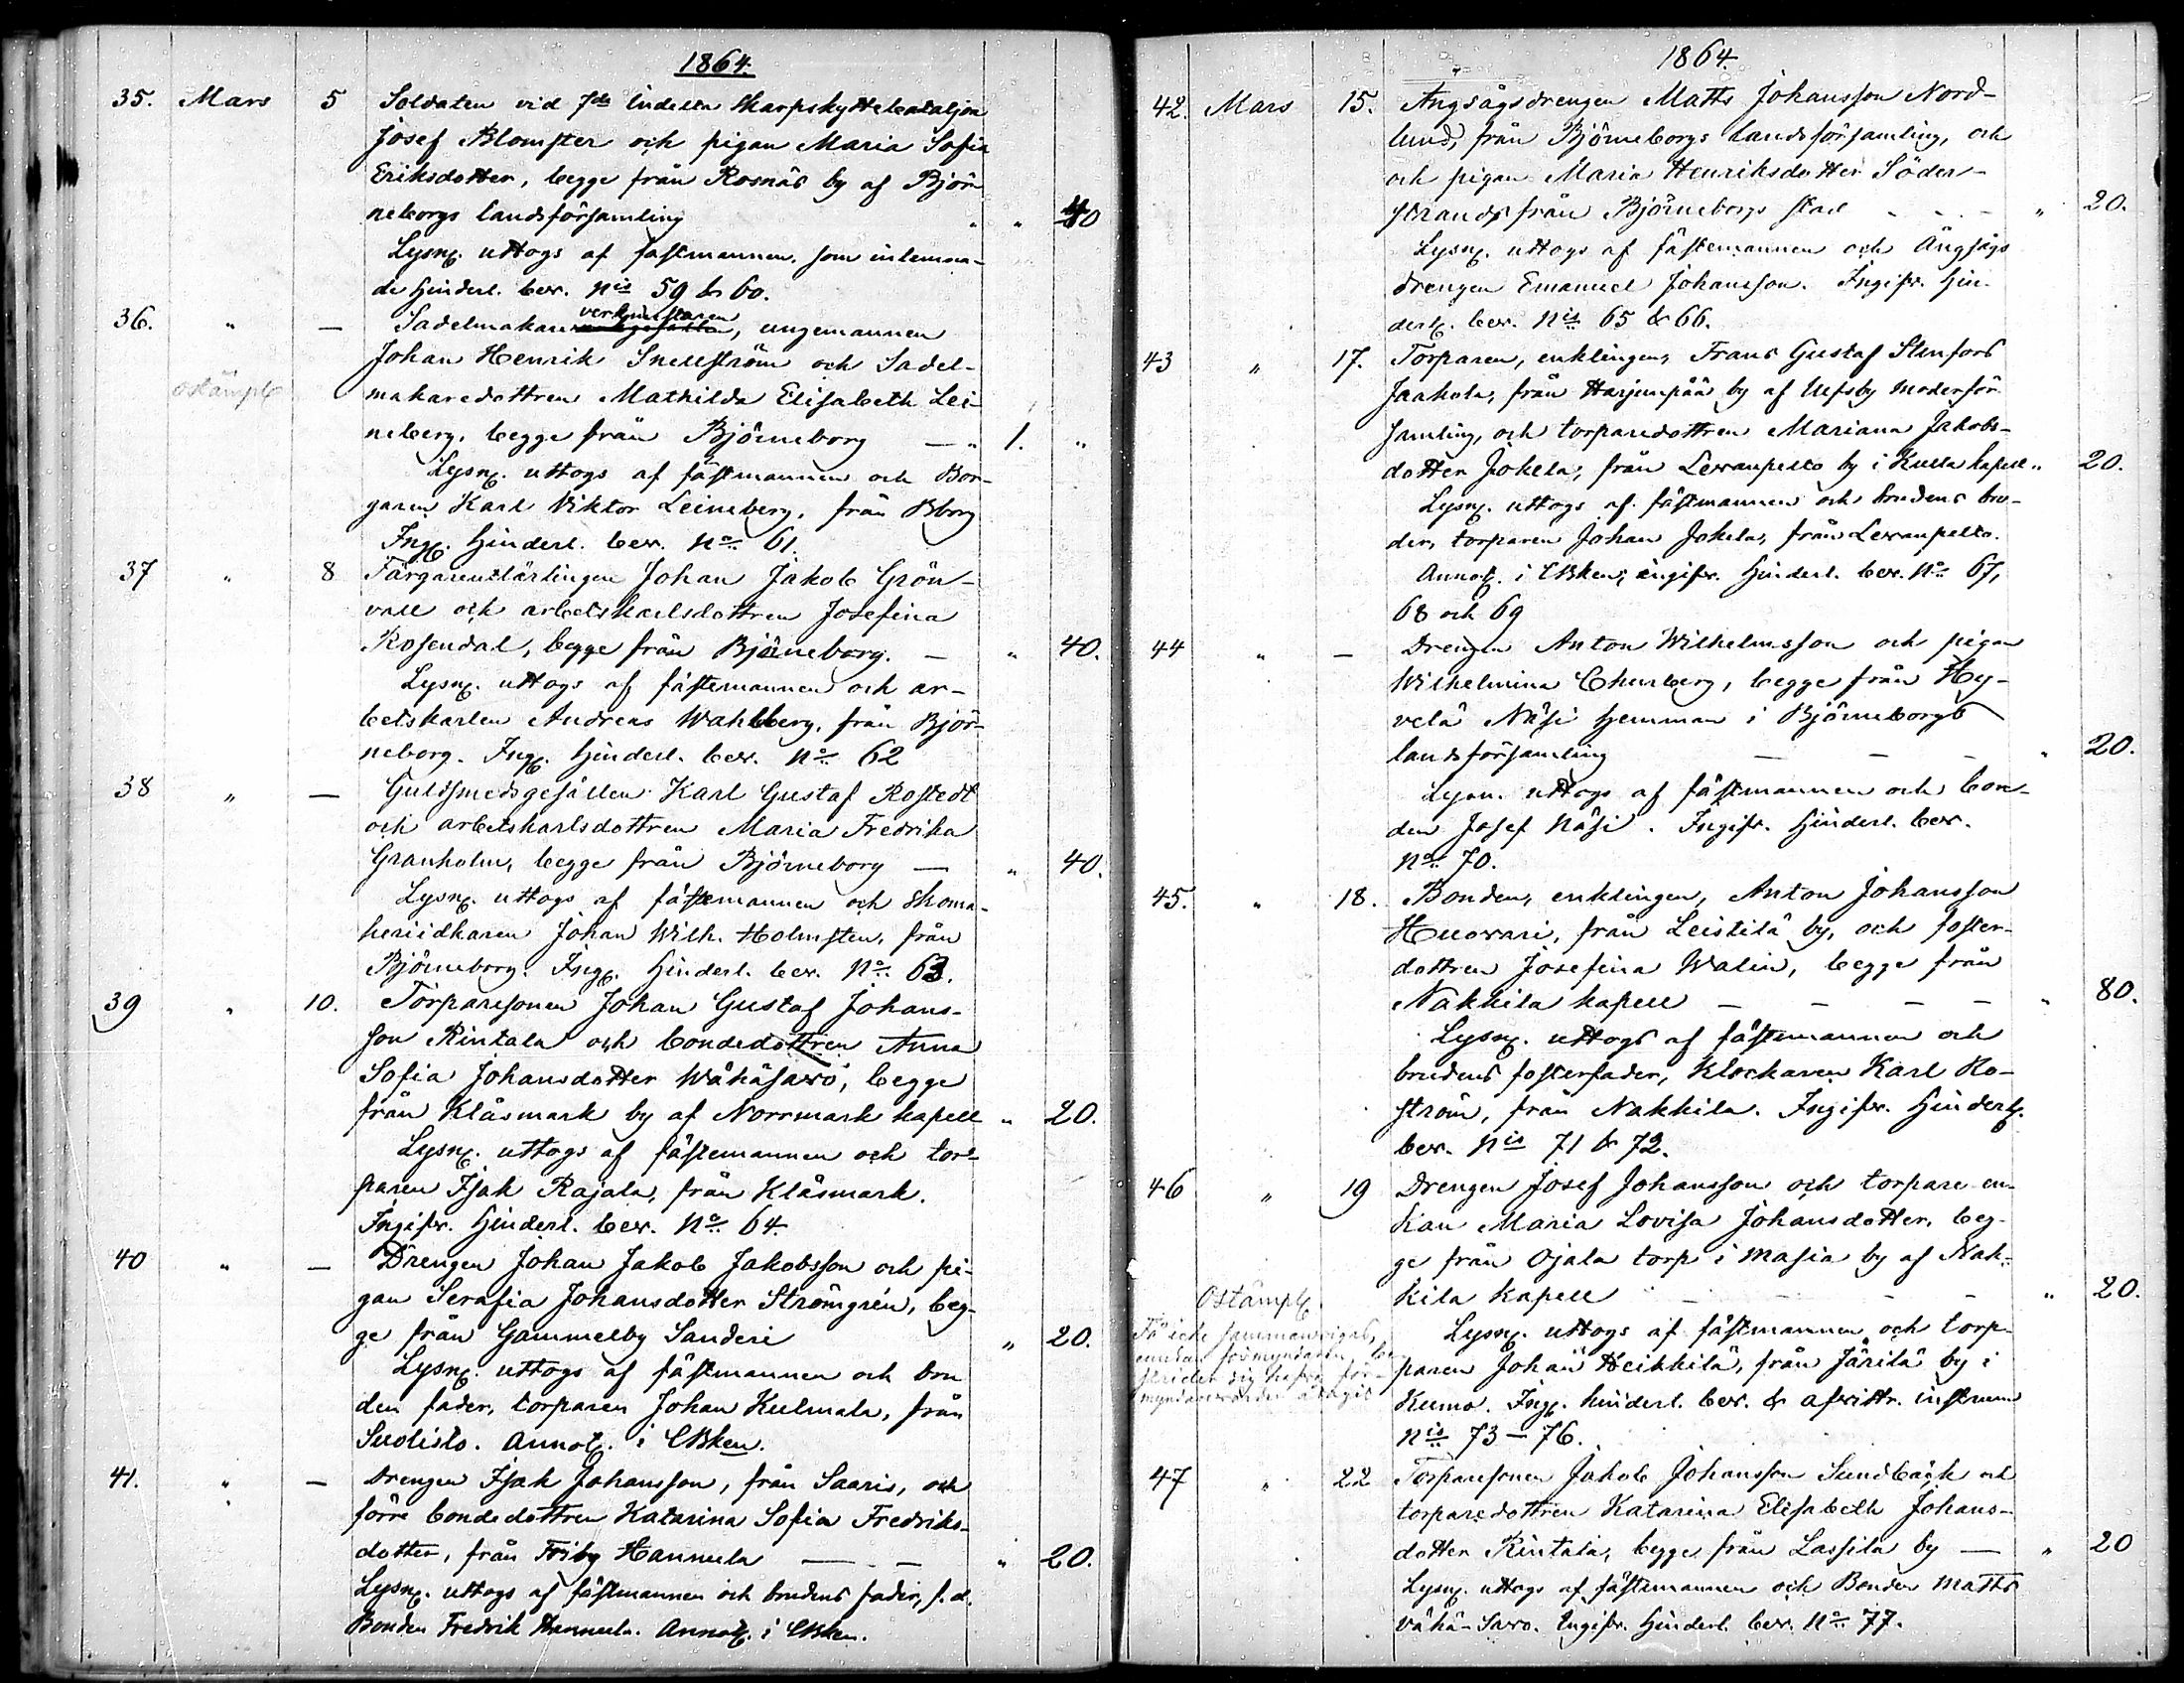 1864.
35. Mars 5 Soldaten vid 7de indelta Skarpskyttebataljon
Josef Blomster och pigan Maria Sofia
Eriksdotter, begge från Rosnäs by af Björ-
neborgs landsförsamling " 40
Lysng. uttogs af fästmannen, som inlemna-
de hinderl. bev. Nis 59 & 60.
36. " — Sadelmakare verkmästaren, ungemannen
Johan Henrik Snellström och Sadel-
ostämpl. makaredottren Mathilda Elisabeth Lei-
neberg, begge från Björneborg — " 1. "
Lysng. uttogs af fästmannen och Bor-
garen Karl Viktor Leineberg, från Bborg
Ing. Hinderl. bev. No 61.
37 " 8 Färgarenslärlingen Johan Jakob Grön-
vall och arbetskarlsdottren Josefina
Rosendal, begge från Björneborg. — " 40.
Lysng. uttogs af fästemannen och ar-
betskarlen Andreas Wahlberg, från Björ-
neborg. Ing. Hinderl. bev. No 62
38 " — Guldsmedsgesällen Karl Gustaf Rostedt
och arbetskarlsdottren Maria Fredrika
Granholm, begge från Björneborg — " 40.
Lysng. uttogs af fästemannen och Skoma-
heriidkaren Johan Wilh. Holmsten, från
Björneborg. Ing. Hinderl. bev. No 63.
39 " 10. Torparesonen Johan Gustaf Johans-
son Rintala och bondedottren Anna
Sofia Johansdotter Wähäsavo, begge
från Klåsmark by af Norrmark kapell " 20.
Lysng. uttogs af fästemannen och tor-
paren Isak Rajala, från Klåsmark.
Ingifv. Hinderl. bev. No 64.
40 " — Drengen Johan Jakob Jakobsson och pi-
gan Serafia Johansdotter Strömgrén, beg-
ge från Gammelby Sanderi " 20.
Lysng. uttogs af fästmannen och bru
den fader, torparen Johan Kulmala, från
Suolisto. Annot. i CBken.
41. " — Drengen Isak Johansson, från Saaris, och
förre bondedottren Katarina Sofia Fredriks-
dotter, från Friby Hannula — — " 20.
Lysng. uttogs af fästmannen och brudens fader, f. d.
Bonden Fredrik Hannula. Annot. i CBken.
1864.
42. Mars 15. Ångsågsdrengen Matts Johansson Nord-
lund, från Björneborgs landsförsamling, och
och pigan Maria Henriksdotter Söder-
strand, från Björneborgs stad - - - " 20.
Lysng. uttogs af fästemannen och Ångsågs
drengen Emanuel Johansson. Ingifv. Hin-
derl. bev. Nis 65 & 66.
43 " 17. Torparen, enklingen, Frans Gustaf Stenfors
Jaakola, från Harjunpää by af Ulfsby moderför-
samling, och torparedottren Mariana Jakobs-
dotter Jokela, från Levanpelto by i Kulla kapell " 20.
Lysng. uttogs af fästmannen och brudens bro-
der, torparen Johan Jokela, från Levanpelto.
Annot. i CBken, ingifv. Hinderl. bev. No 67,
68 och 69
44 " — Drengen Anton Wilhelmsson och pigan
Wilhelmina Churberg, begge från Hy-
velä Näsi hemman i Björneborgs
landsförsamling — — — " 20.
Lysn. uttogs af fästmannen och bon-
den Josef Näsi. Ingifv. Hinderl. bev.
No 70.
45. " 18. Bonden, enklingen, Anton Johansson
Huovari, från Leistilä by, och foster-
dottren Josefina Walin, begge från
Nakkila kapell — — — — " 80.
Lysng. uttogs af fästemannen och
brudens fosterfader, Klockaren Karl Ro-
ström, från Nakkila. Ingifv. Hinderl.
bev. Nis 71 & 72.
46 " 19 Drengen Josef Johansson och torpare en-
kan Maria Lovisa Johansdotter, beg-
ge från Ojala torp i Masia by af Nak-
Ostämpl. kila kapell — — — " 20.
Få icke sammanvigas,
Lysng. uttogs af fästmannen och torp-
paren Johan Heikkilä, från Järilä by i
Kumo. Ing. hinderl. bev. & afvittr. instrum
Nis 73–76.
47 " 22 Torparesonen Jakob Johansson Sundbäck och
torparedottren Katarina Elisabeth Johans-
dotter Rintala, begge från Lassila by — " 20
Lysng. uttogs af fästemannen och Bonden Matts
Vähä-Savo. Ingifv. Hinderl. bev. No 77.